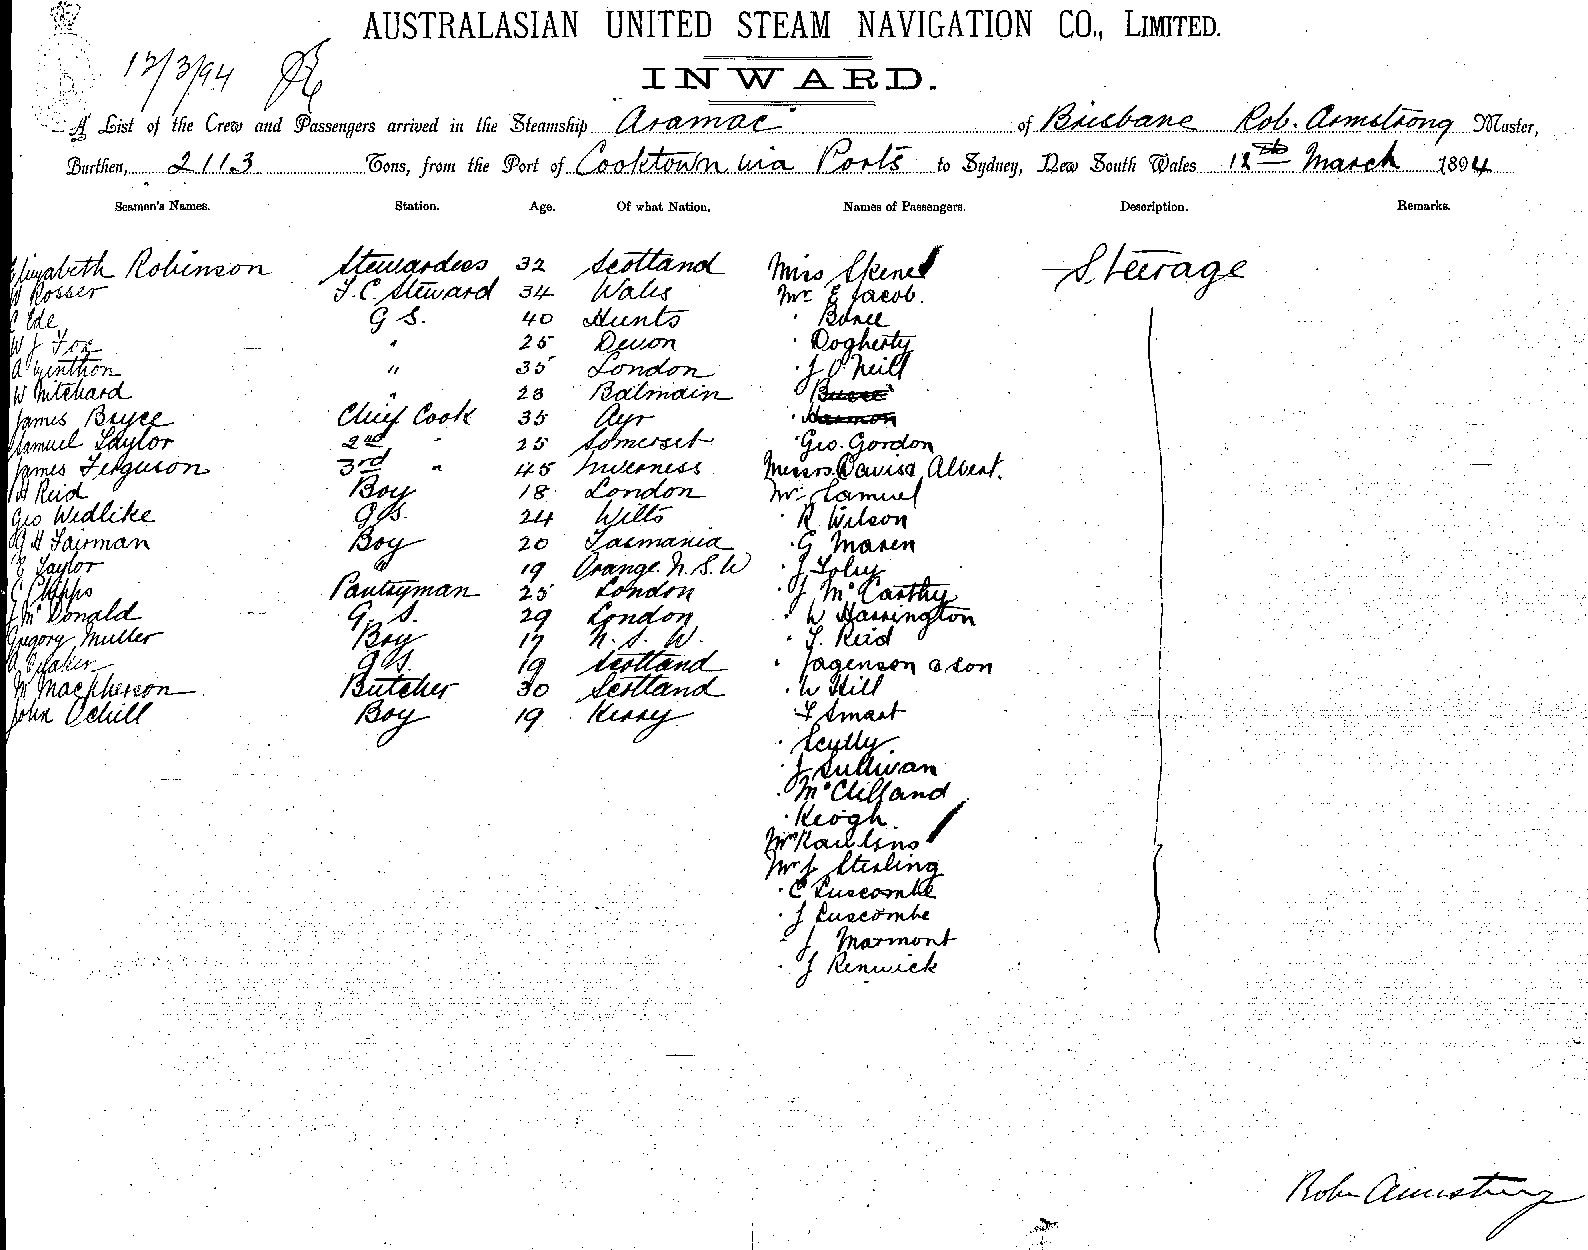 AUSTRALASIAN UNITED STEAM NAVIGATION CO., LIMITED.
12/3/94
INWARD.
A List of the Crew and Passengers arrived in the Steamship Aramac of Brisbane Rob. Armstrong Master,
Burthen, 2113 Tons, from the Port of Cooktown via Ports to Sydney, New South Wales 12th March 1894
Seamen's Names. Station. Age. Of what Nation. Names of Passengers. Description. Remarks.
Elizabeth Robinson Stewardess 32 Scotland Miss Skene Steerage
W Rosser F.C. Steward 34 Wales Mr E Jacob.
Ede G S. 40 Hunts
W J Fox " 25 Devon " Dogherty
A " 35 London " J O'Neill
W Pritchard " 28 Balmain
James Bryce Chief Cook 35 Ayr " Harmon
Samuel Taylor 2nd " 25 Somerset " Geo. Gordon
James Ferguson 3rd " 45 Inverness Messrs. Davis & Albert.
H Reid Boy 18 London Mr Samuel
Geo Wedlike G.S. 24 Wilts " R Wilson
G H Fairman Boy 20 Tasmania " G Maren
E Taylor 19 Orange. N.S.W " J
E Phipps Pantryman 25 London " J McCarthy
J McDonald G. S. 29 London " W Harrington
Gregory Muller Boy 17 N. S. W. " F. Reid
A G.S. 19 Scotland " Jagenson & son
M Macpherson Butcher 30 Scotland " W Hill
John O'Chill Boy 19 Kerry " F Smart
" Scully
" J Sullivan
" McClelland
" Keogh
Mrs Rawlins
Mr J Sterling
" C Luscombe
" J Luscombe
" J Marmont
" J Renwick
Robt Armstrong